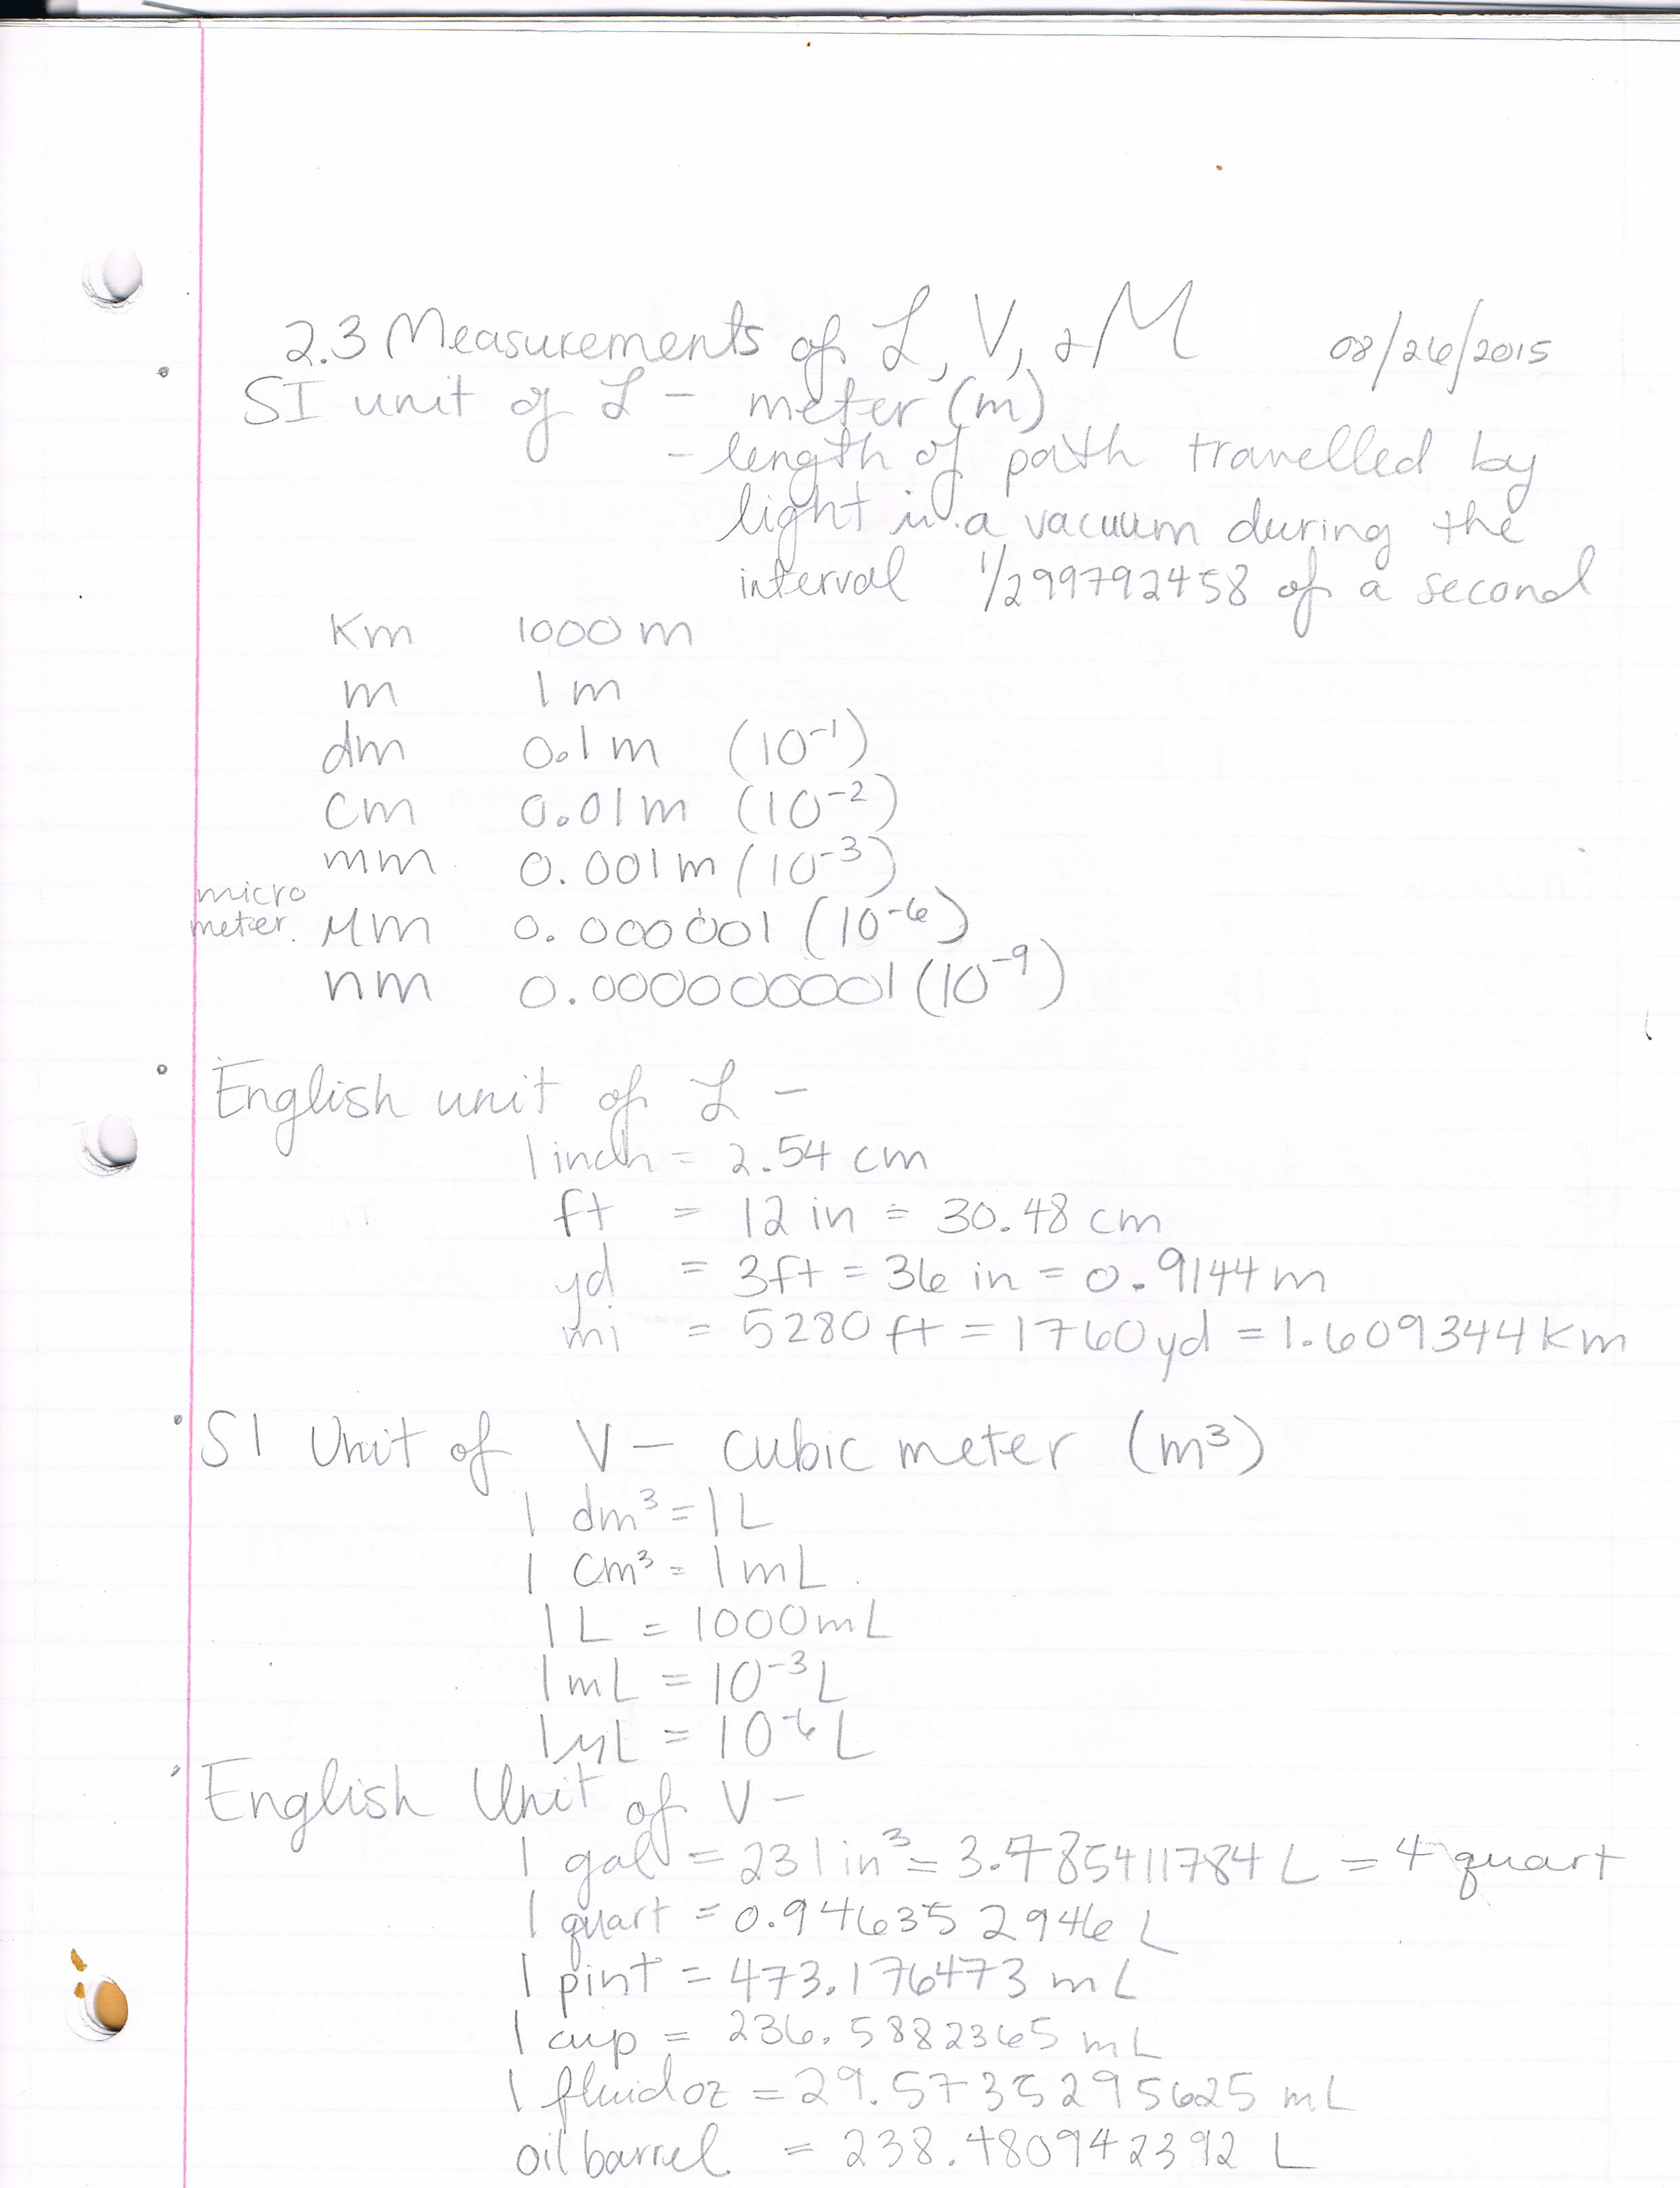 2.3 Measurements of L, V, & M 08/26/2015
• SI unit of L - meter (m)
- length of path travelled by
light in a vacuum during the
interval 1/299792458 of a second
Km 1000 m
m 1 m
dm 0.1 m (10⁻¹)
cm 0.01 m (10⁻²)
mm 0.001 m (10⁻³)
micro
meter. μm 0.000001 (10⁻⁶)
nm 0.000000001 (10⁻⁹)
• English unit of L -
1 inch = 2.54 cm
ft = 12 in = 30.48 cm
yd = 3ft = 36 in = 0.9144 m
mi = 5280 ft = 1760 yd = 1.609344 Km
• SI Unit of V - cubic meter (m³)
1 dm³ = 1 L
1 cm³ = 1 mL
1 L = 1000 mL
1 mL = 10⁻³ L
1 μL = 10⁻⁶ L
• English Unit of V -
1 gal = 231 in³ = 3.785411784 L = 4 quart
1 quart = 0.946352946 L
1 pint = 473.176473 mL
1 cup = 236.5882365 mL
1 fluid oz = 29.5735295625 mL
oil barrel = 238.480942392 L